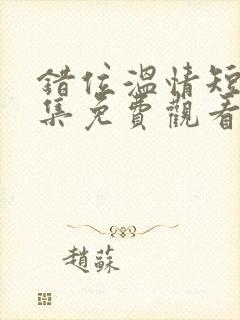 錯位溫情短
集免費觀看
趙蘇